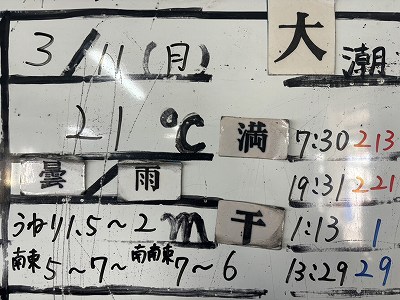 3/11(月) 大潮
21℃ 満 7:30 213
曇/雨 19:31 221
うねり1.5～2m 干 1:13 1
南東5～7～南南東7～6 13:29 29